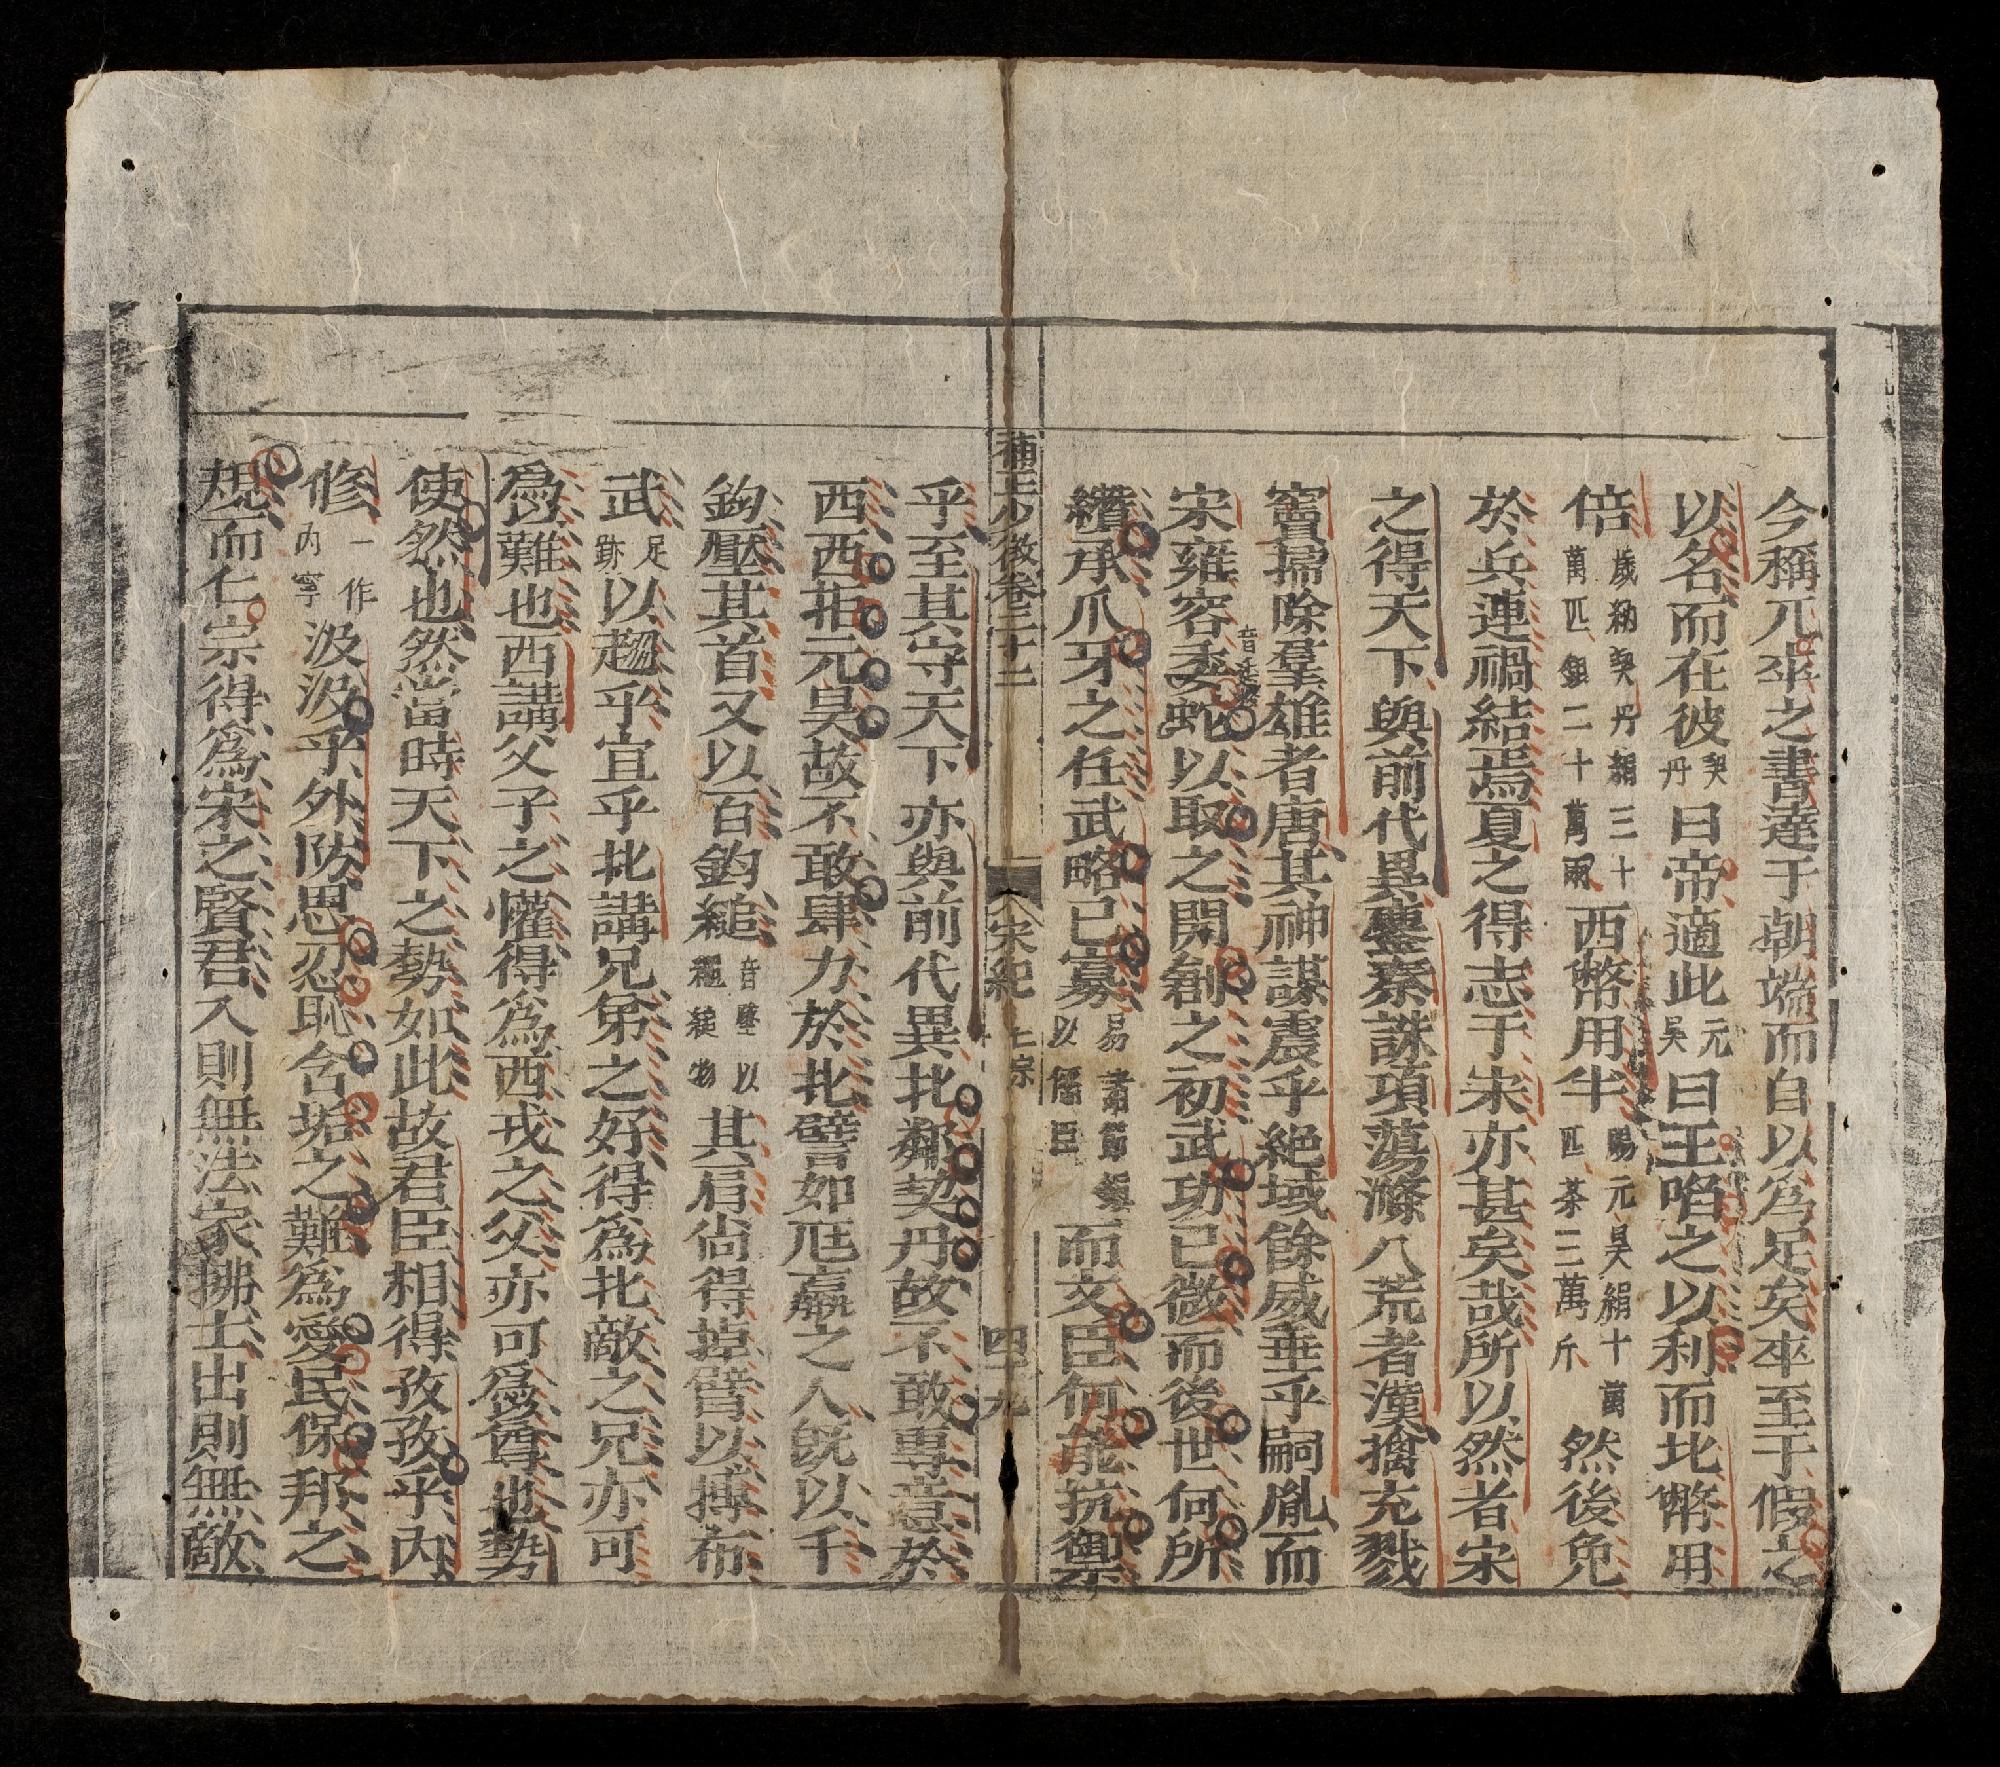 今稱兀卒之書達于朝端而自以爲足矣卒至于假之
以名而在彼契丹曰帝適此元昊曰王啗之以利而北幣用
倍歲納契丹絹三十萬匹銀二十萬兩西幣用半賜元昊絹十萬匹茶三萬斤然後免
於兵連禍結焉夏之得志于宋亦甚矣哉所以然者宋
之得天下與前代異鏖秦誅項蕩滌八荒者漢擒充戮
竇掃除羣雄者唐其神謀震乎絕域餘威垂乎嗣胤而
宋雍容委蛇以取之開創之初武功已微而後世何所
音委
纘承爪牙之任武略已寡易諸節鎮以儒臣而文臣何能抗禦
補正少微卷三十二
宋紀
仁宗
四十九
乎至其守天下亦與前代異北鄰契丹故不敢專意於
西西拒元昊故不敢肆力於北譬如尫羸之人旣以千
鈞壓其首又以百鈞縋音墜以繩縋物其肩尙得掉臂以搏布
武足跡以趨乎宜乎北講兄弟之好得爲北敵之兄亦可
爲難也西講父子之懽得爲西戎之父亦可爲尊也勢
使然也然當時天下之勢如此故君臣相得孜孜乎內
修一作內寧汲汲乎外防思忍恥含垢之難爲愛民保邦之
規而仁宗得爲宋之賢君入則無法家拂士出則無敵